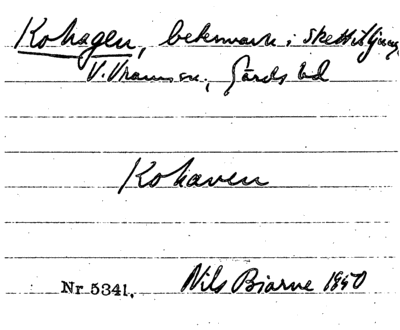 Kohagen, betesmark i Skettiljunga,
V. Vrams sn., Gärds hd
Kohaven
Nr 5341. Nils Bjarne 1950